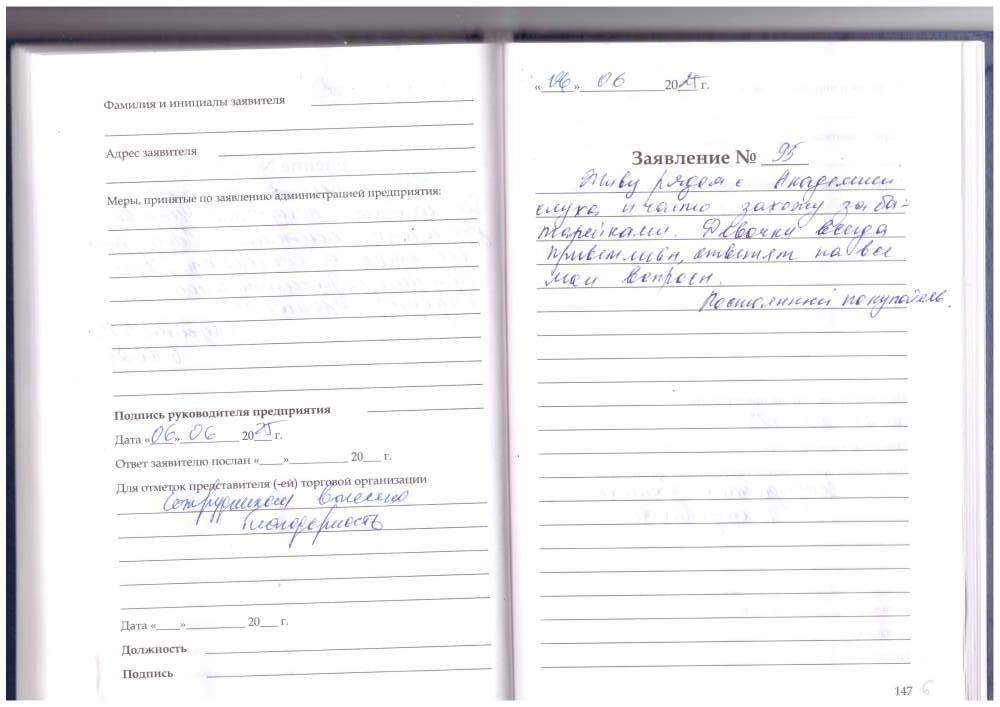 Фамилия и инициалы заявителя
Адрес заявителя
Меры, принятые по заявлению администрацией предприятия:
Подпись руководителя предприятия
Дата «06» 06 2025 г.
Ответ заявителю послан «____»__________ 20___ г.
Для отметок представителя (-ей) торговой организации
Сотрудникам вынесена
благодарность
Дата «____»__________ 20___ г.
Должность
Подпись
«06» 06 2025 г.
Заявление № 95
Живу рядом с Академией
слуха и часто захожу за ба-
тарейками. Девочки всегда
приветливы, ответят на все
мои вопросы.
Постоянный покупатель.
147
6